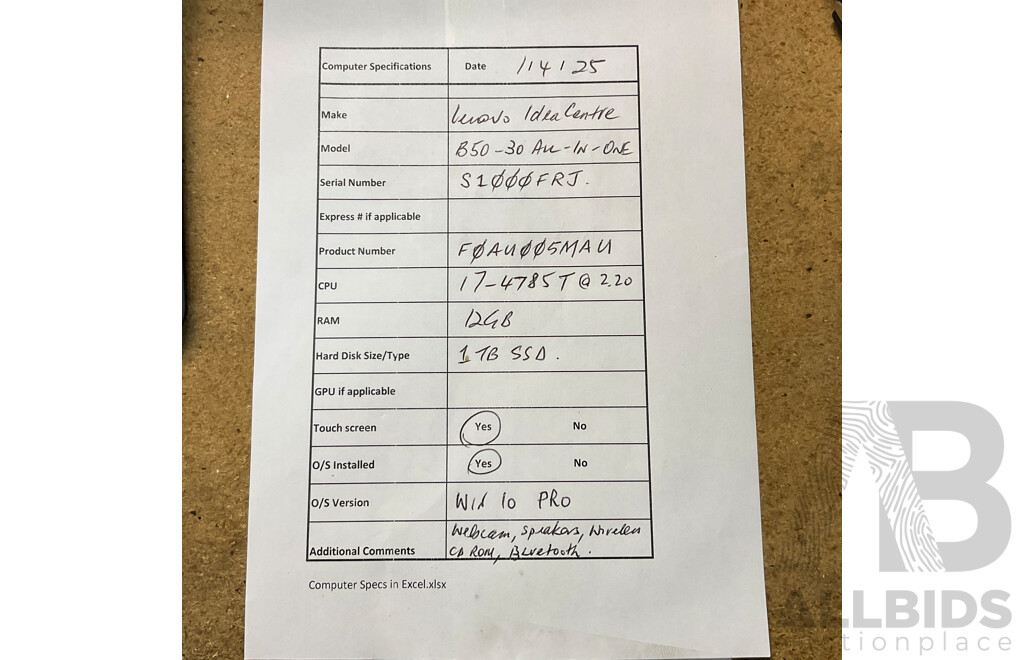 Computer Specifications Date 1/4/25
Make Lenovo IdeaCentre
Model B50-30 ALL-IN-ONE
Serial Number S1000FRJ.
Express # if applicable
Product Number F0AU005MAU
CPU i7-4785T @ 2.20
RAM 12GB
Hard Disk Size/Type 1 TB SSD.
GPU if applicable
Touch screen Yes No
O/S Installed Yes No
O/S Version WIN 10 PRO
Webcam, Speakers, Wireless
Additional Comments CD ROM, Bluetooth.
Computer Specs in Excel.xlsx
B
ALLBIDS
tionplace